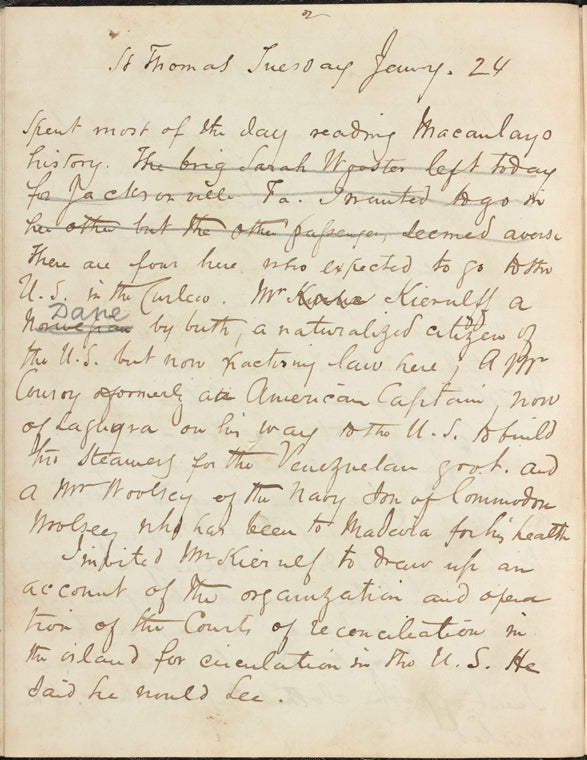 St Thomas Tuesday Jany. 24
Spent most of the day reading Macaulays
history. The brig Sarah Wooster left today
for Jacksonville Fa. I wanted to go in
her other but the other passenger, seemed averse
There are four here who expected to go to the
U.S. in the Curlew. Mr Kierulff a
Dane
Norwegian by birth, a naturalized citizen of
the U.S. but now practising law here, A Mr
Conroy formerly an American Captain, now
of Laguyra on his way to the U.S. to build
the Steamers for the Venezuelan govt. and
a Mr Woolsey of the Navy Son of Commodore
Woolsey who has been to Madeira for his health
I invited Mr Kierulf to draw up an
account of the organization and opera
tion of the Courts of reconciliation in
the island for circulation in the U.S. He
said he would see.